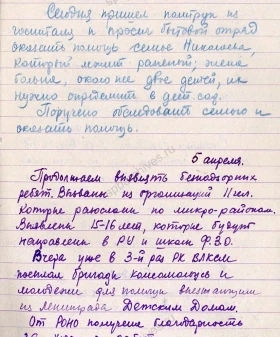 Сегодня пришел политрук из
госпиталя и просил бытовой отряд
оказать помощь семье Николаева,
который лежит раненый; жена
больна, около нее двое детей, их
нужно определить в дет. сад.
Поручено обследовать семью и
оказать помощь.
5 апреля.
Продолжаем выявлять безнадзорных
ребят. Вызваны из организаций 11 чел.
которые разосланы по микро-районам.
Выявлены 15-16 лет, которые будут
направлены в РУ и школы ФЗО.
Вчера уже в 3-й раз РК ВЛКСМ
посылал бригады комсомольцев и
молодежи для помощи выезжающим
из Ленинграда Детским Домам.
От РОНО получена благодарность